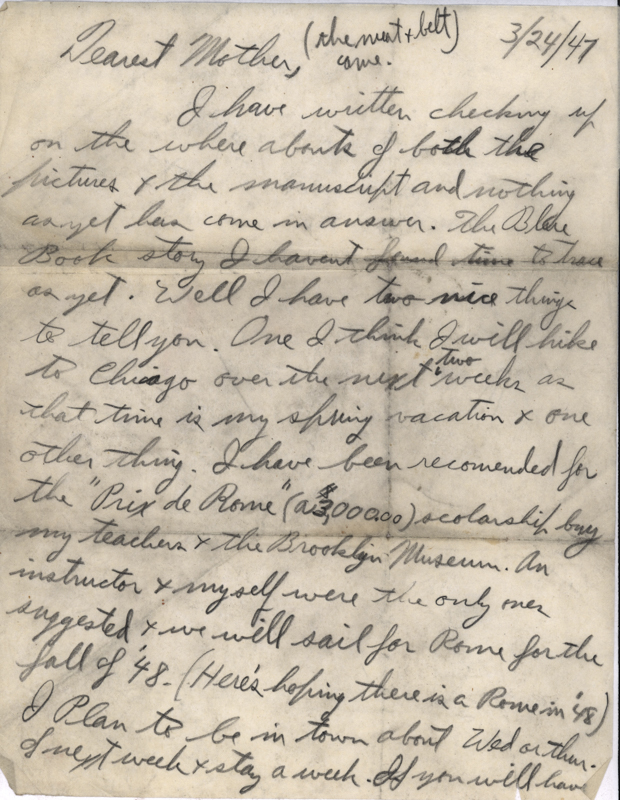 Dearest Mother, (the meat & belt) come. 3/24/47
I have written checking up
on the where abouts of both the
pictures & the manuscript and nothing
as yet has come in answer. The Blue
Book story I havent found time to trace
as yet. Well I have two nice things
to tell you. One I think I will hike
to Chicago over the next two weeks as
that time is my spring vacation & one
other thing. I have been recomended for
the "Prix de Rome" (a $3,000.00) scolarship buy
my teachers & the Brooklyn Museum. An
instructor & myself were the only ones
suggested & we will sail for Rome for the
fall of '48. (Here's hoping there is a Rome in '48)
I Plan to be in town about Wed or thur.
of next week & stay a week. If you will have